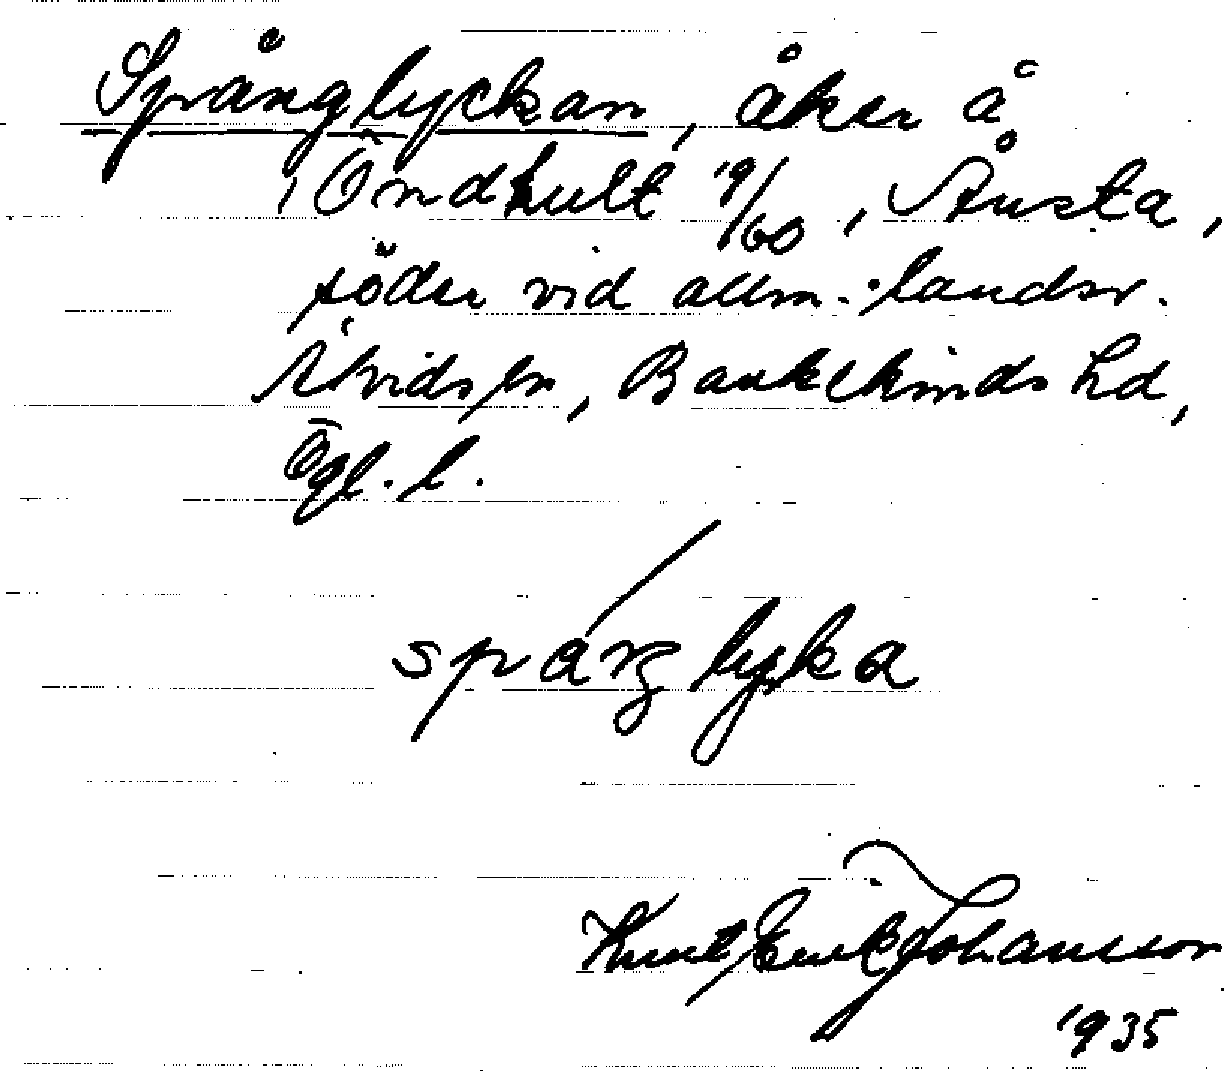 Språnglyckan, åker å
Öndhult 19/60, Årista,
söder vid allm. landsv.
Åtvids sn, Bankekinds hd,
Ögl. l.
språŋlyka
Knut Erik Johansson
1935